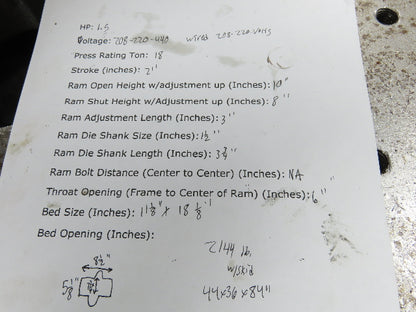 HP: 1.5
Voltage: 208-220-440 wired 208-220 volts
Press Rating Ton: 18
Stroke (inches): 2"
Ram Open Height w/adjustment up (Inches): 10"
Ram Shut Height w/Adjustment up (Inches): 8"
Ram Adjustment Length (Inches): 3"
Ram Die Shank Size (Inches): 1½"
Ram Die Shank Length (Inches): 3 ¾"
Ram Bolt Distance (Center to Center) (Inches): NA
Throat Opening (Frame to Center of Ram) (Inches): 6"
Bed Size (Inches): 11 ⅛" x 18 ⅛"
Bed Opening (Inches):
2144 lb.
w/skid
44x36x84"
8½"
5 ⅛"